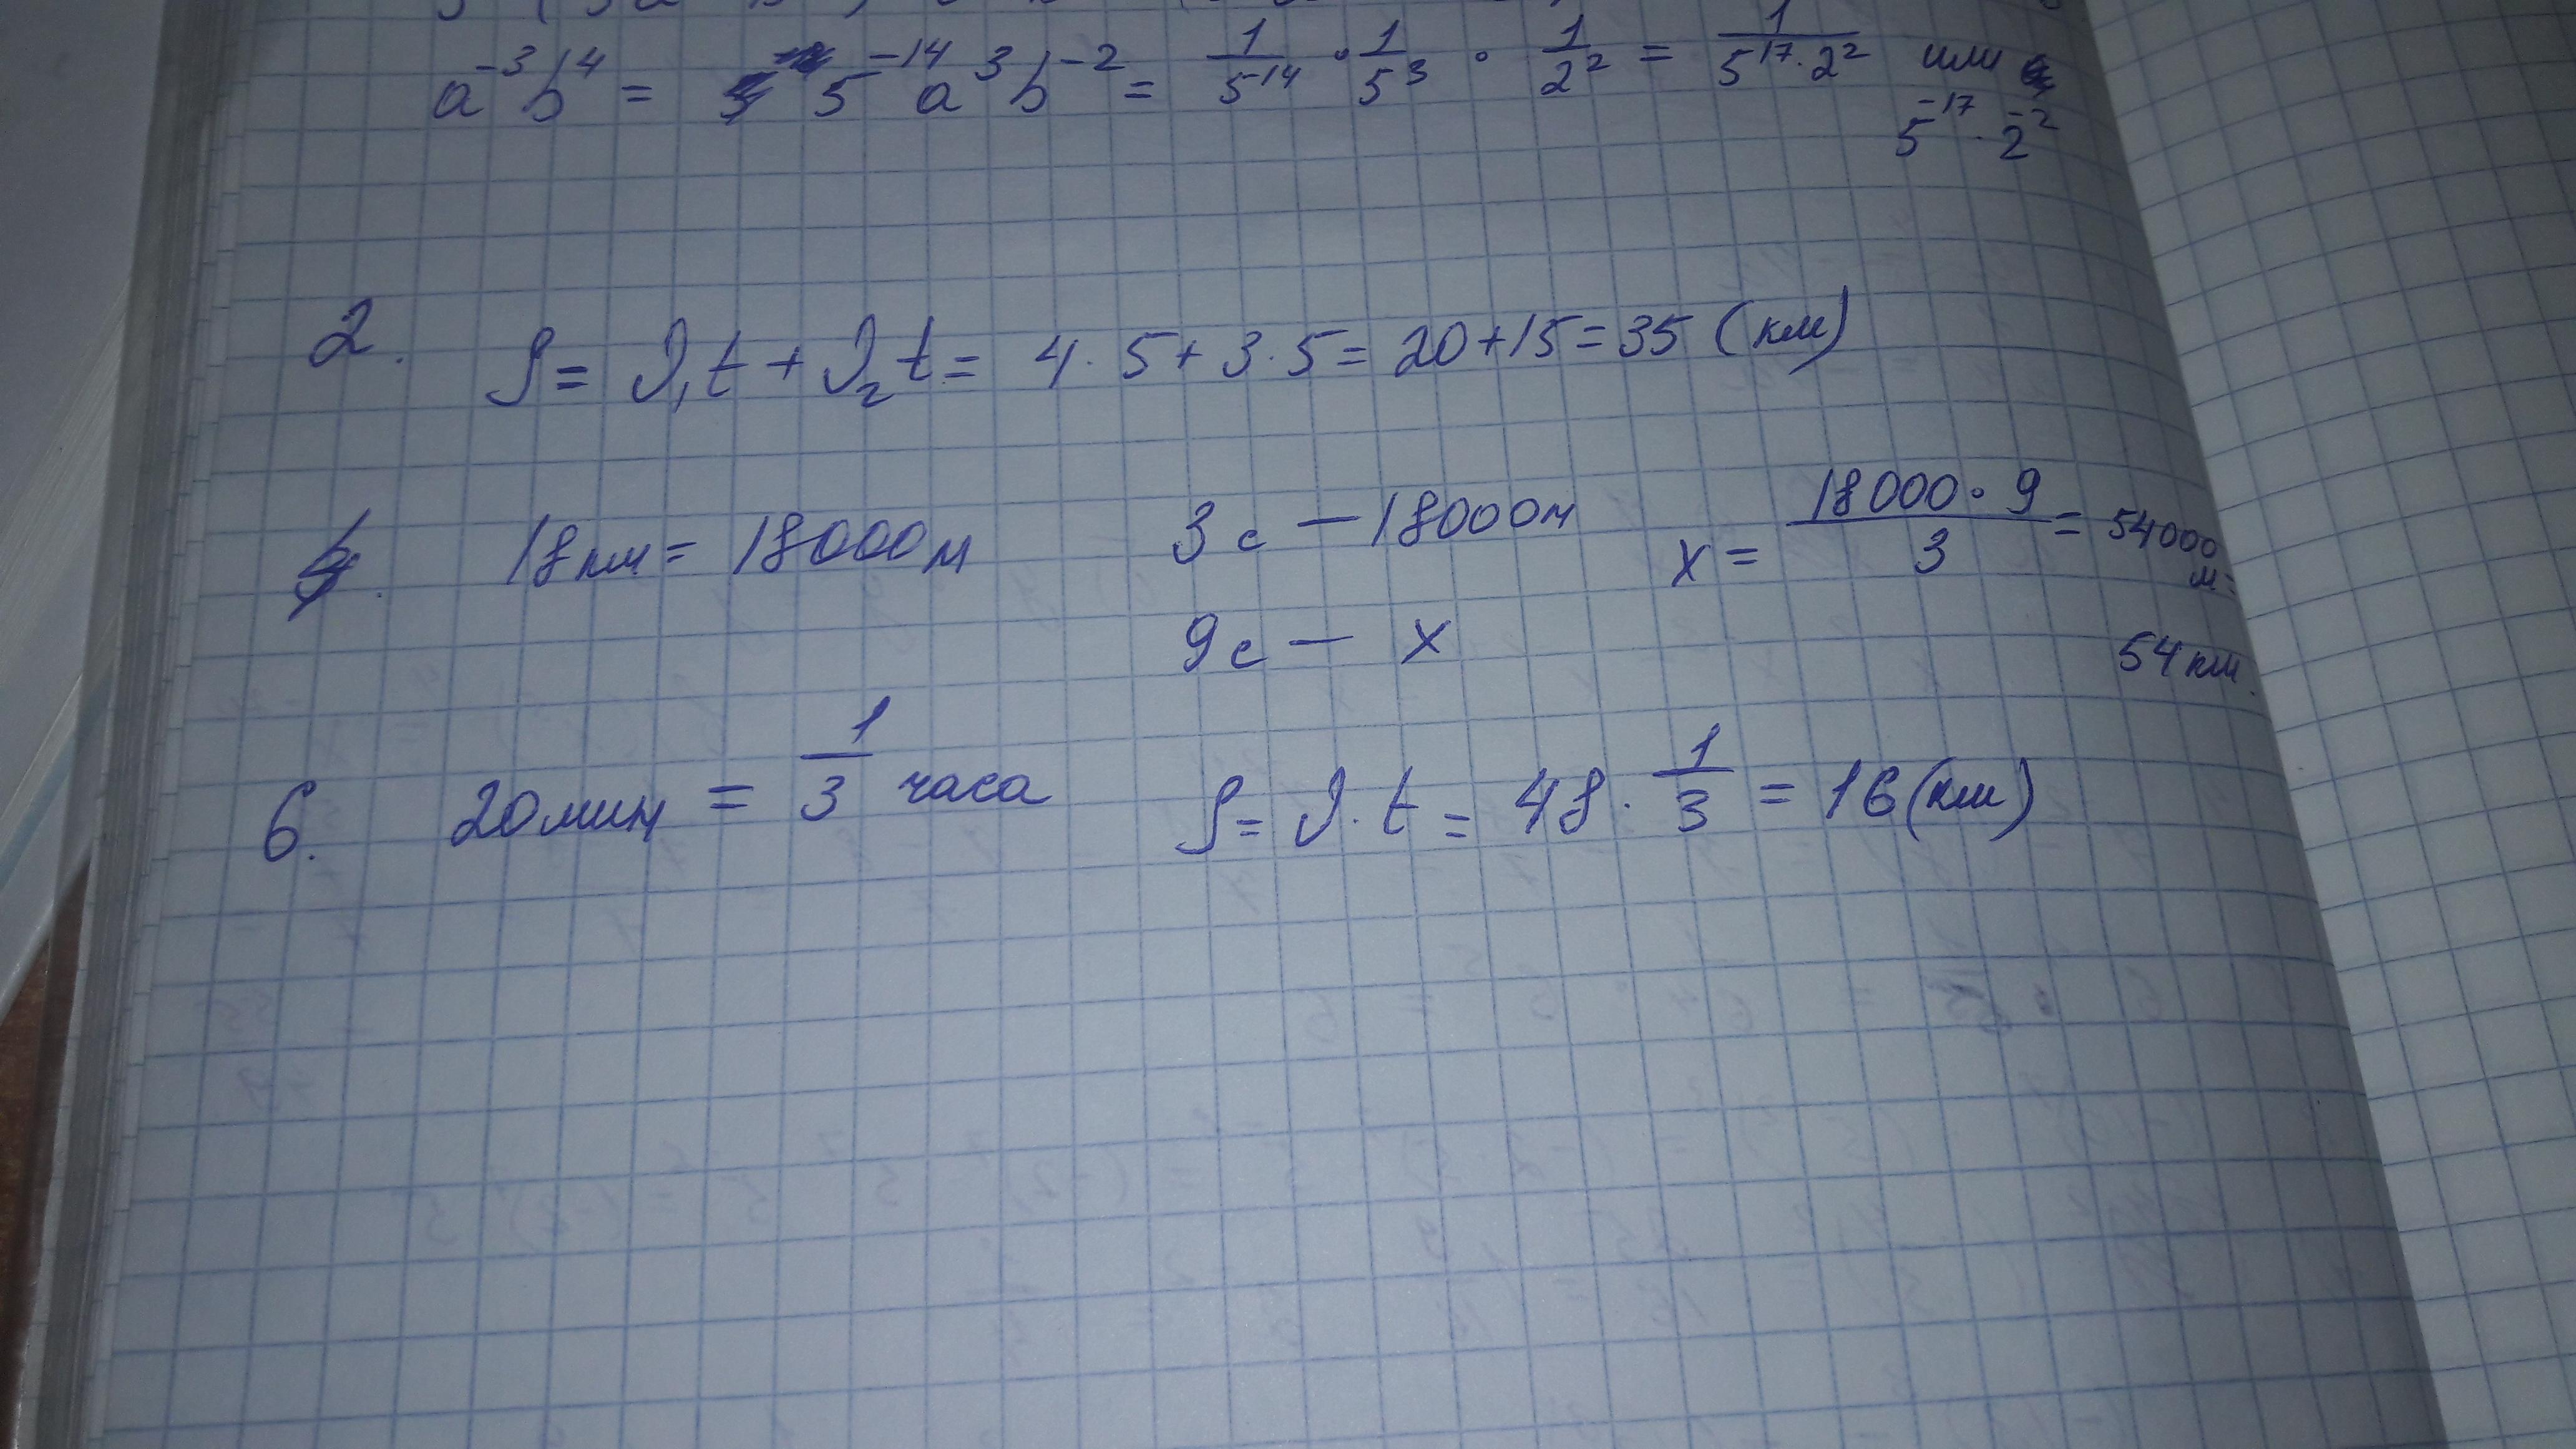 a⁻³b⁴ = 5⁻¹⁴a³b⁻² = 1/5⁻¹⁴ · 1/5³ · 1/2² = 1/5¹⁷·2² или
5⁻¹⁷ · 2⁻²
2. S = V₁t + V₂t = 4 · 5 + 3 · 5 = 20 + 15 = 35 (км)
18км = 18000м 3с — 18000м x = 18000 · 9 / 3 = 54000
м =
9с — x 54 км.
6. 20мин = 1/3 часа S = V · t = 48 · 1/3 = 16 (км)